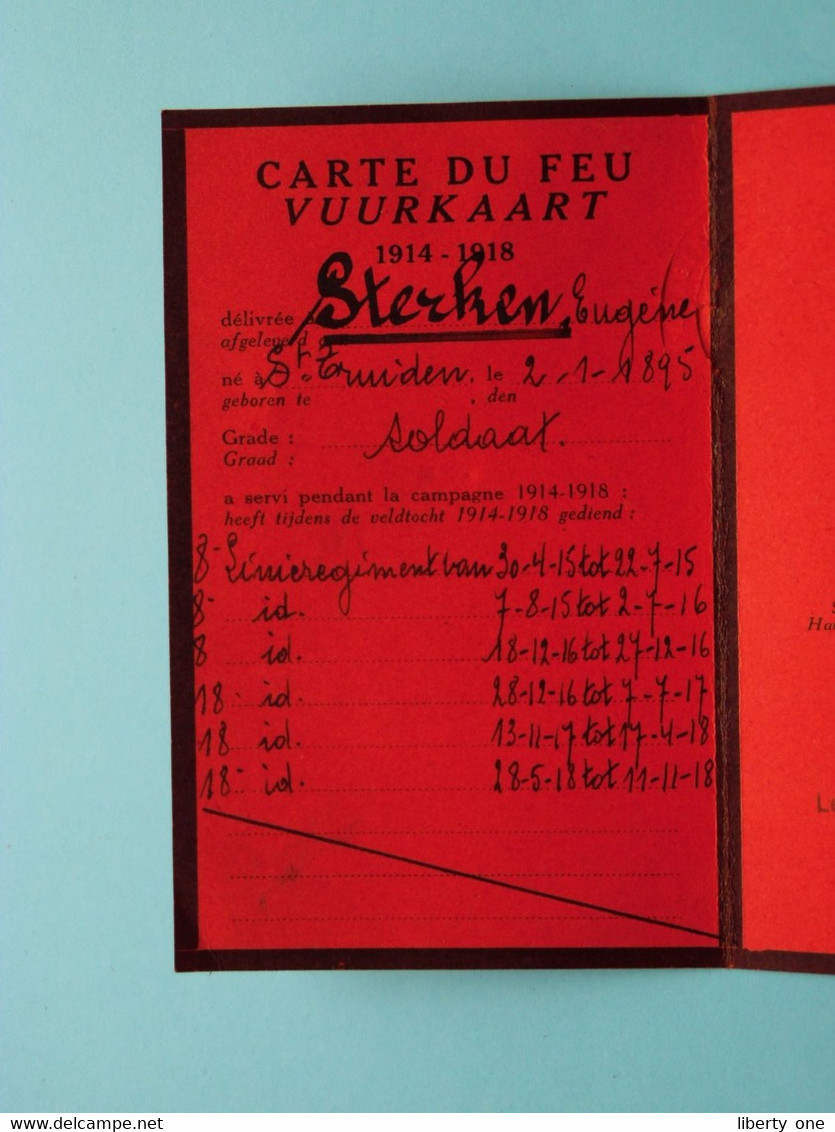 CARTE DU FEU
VUURKAART
1914 - 1918
délivrée à Sterken, Eugène
afgeleverd
né à St Truiden, le 2-1-1895
geboren te , den
Grade : soldaat.
Graad :
a servi pendant la campagne 1914-1918 :
heeft tijdens de veldtocht 1914-1918 gediend :
8- Linieregiment van 30-4-15 tot 22-7-15
8- id. 7-8-15 tot 2-7-16
8 id. 18-12-16 tot 27-12-16
18- id. 28-12-16 tot 7-7-17
18 id. 13-11-17 tot 17-4-18
18- id. 28-5-18 tot 11-11-18
Ha
L
www.delcampe.net
liberty one